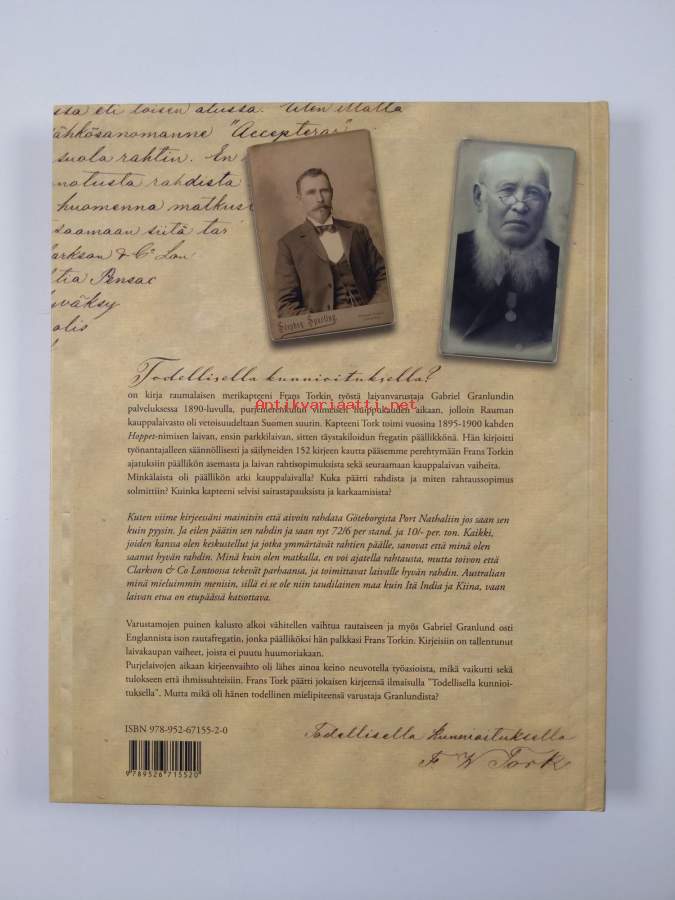 ssa eli toisen alussa. Uten ittalla
ähkösanomanne "Accepteras"
suola rahtin. En
notusta rahdista
huomenna matkust
saamaan siitä tar
larkson & Co Lon
ltia Pensac
yväksy
olis
Stephen Spurling
Todellisella kunnioituksella?
on kirja raumalaisen merikapteeni Frans Torkin työstä laivanvarustaja Gabriel Granlundin
palveluksessa 1890-luvulla, purjemerenkulun viimeisen huippukauden aikaan, jolloin Rauman
kauppalaivasto oli vetoisuudeltaan Suomen suurin. Kapteeni Tork toimi vuosina 1895-1900 kahden
Hoppet-nimisen laivan, ensin parkkilaivan, sitten täystakiloidun fregatin päällikkönä. Hän kirjoitti
työnantajalleen säännöllisesti ja säilyneiden 152 kirjeen kautta pääsemme perehtymään Frans Torkin
ajatuksiin päällikön asemasta ja laivan rahtisopimuksista sekä seuraamaan kauppalaivan vaiheita.
Minkälaista oli päällikön arki kauppalaivalla? Kuka päätti rahdista ja miten rahtaussopimus
solmittiin? Kuinka kapteeni selvisi sairastapauksista ja karkaamisista?
Kuten viime kirjeessäni mainitsin että aivoin rahdata Göteborgista Port Nathaliin jos saan sen
kuin pyysin. Ja eilen päätin sen rahdin ja saan nyt 72/6 per stand. ja 10/- per. ton. Kaikki,
joiden kanssa olen keskustellut ja jotka ymmärtävät rahtien päälle, sanovat että minä olen
saanut hyvän rahdin. Minä kuin olen matkalla, en voi ajatella rahtausta, mutta toivon että
Clarkson & Co Lontoossa tekevät parhaansa, ja toimittavat laivalle hyvän rahdin. Australian
minä mieluimmin menisin, sillä ei se ole niin taudilainen maa kuin Itä India ja Kiina, vaan
laivan etua on etupäässä katsottava.
Varustamojen puinen kalusto alkoi vähitellen vaihtua rautaiseen ja myös Gabriel Granlund osti
Englannista ison rautafregatin, jonka päälliköksi hän palkkasi Frans Torkin. Kirjeisiin on tallentunut
laivakaupan vaiheet, joista ei puutu huumoriakaan.
Purjelaivojen aikaan kirjeenvaihto oli lähes ainoa keino neuvotella työasioista, mikä vaikutti sekä
tulokseen että ihmissuhteisiin. Frans Tork päätti jokaisen kirjeensä ilmaisulla "Todellisella kunnioi-
tuksella". Mutta mikä oli hänen todellinen mielipiteensä varustaja Granlundista?
Antikvariaatti.net
www.antikvariaatti.net
ISBN 978-952-67155-2-0
9 789526 715520
Todellisella kunnioituksella
F W Tork